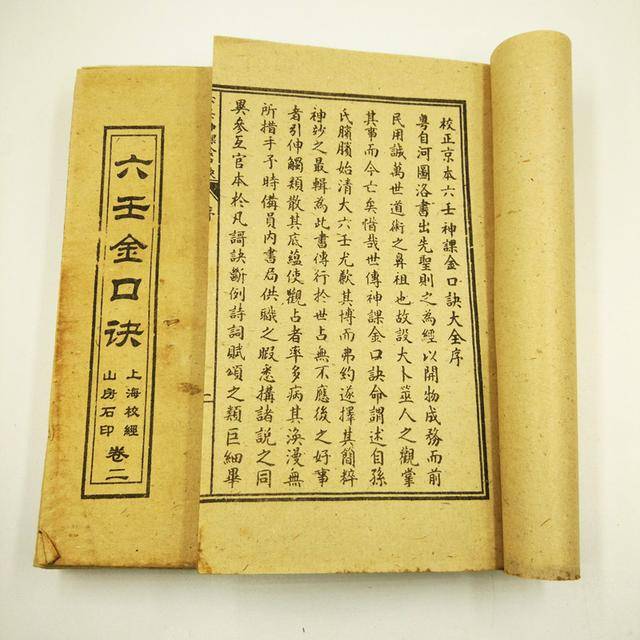 六壬金口诀
上海校經
山房石印
卷二
校正京本六壬神課金口訣大全序
粤自河圖洛書出先聖則之為經以開物成務而前
民用誠萬世道術之鼻祖也故設大卜筮人之觀掌
其事而今亡矣惜哉世傳神課金口訣命謂述自孫
氏臏臏始清大六壬尤歉其博而弗約遂擇其簡粹
神妙之最輯為此書傳行於世占無不應後之好事
者引伸觸類散其底蘊使觀占者率多病其渙漫無
所措手予時備員内書局供職之暇悉搆諸説之同
異參互官本於凡謌訣斷例詩詞賦頌之類巨細畢